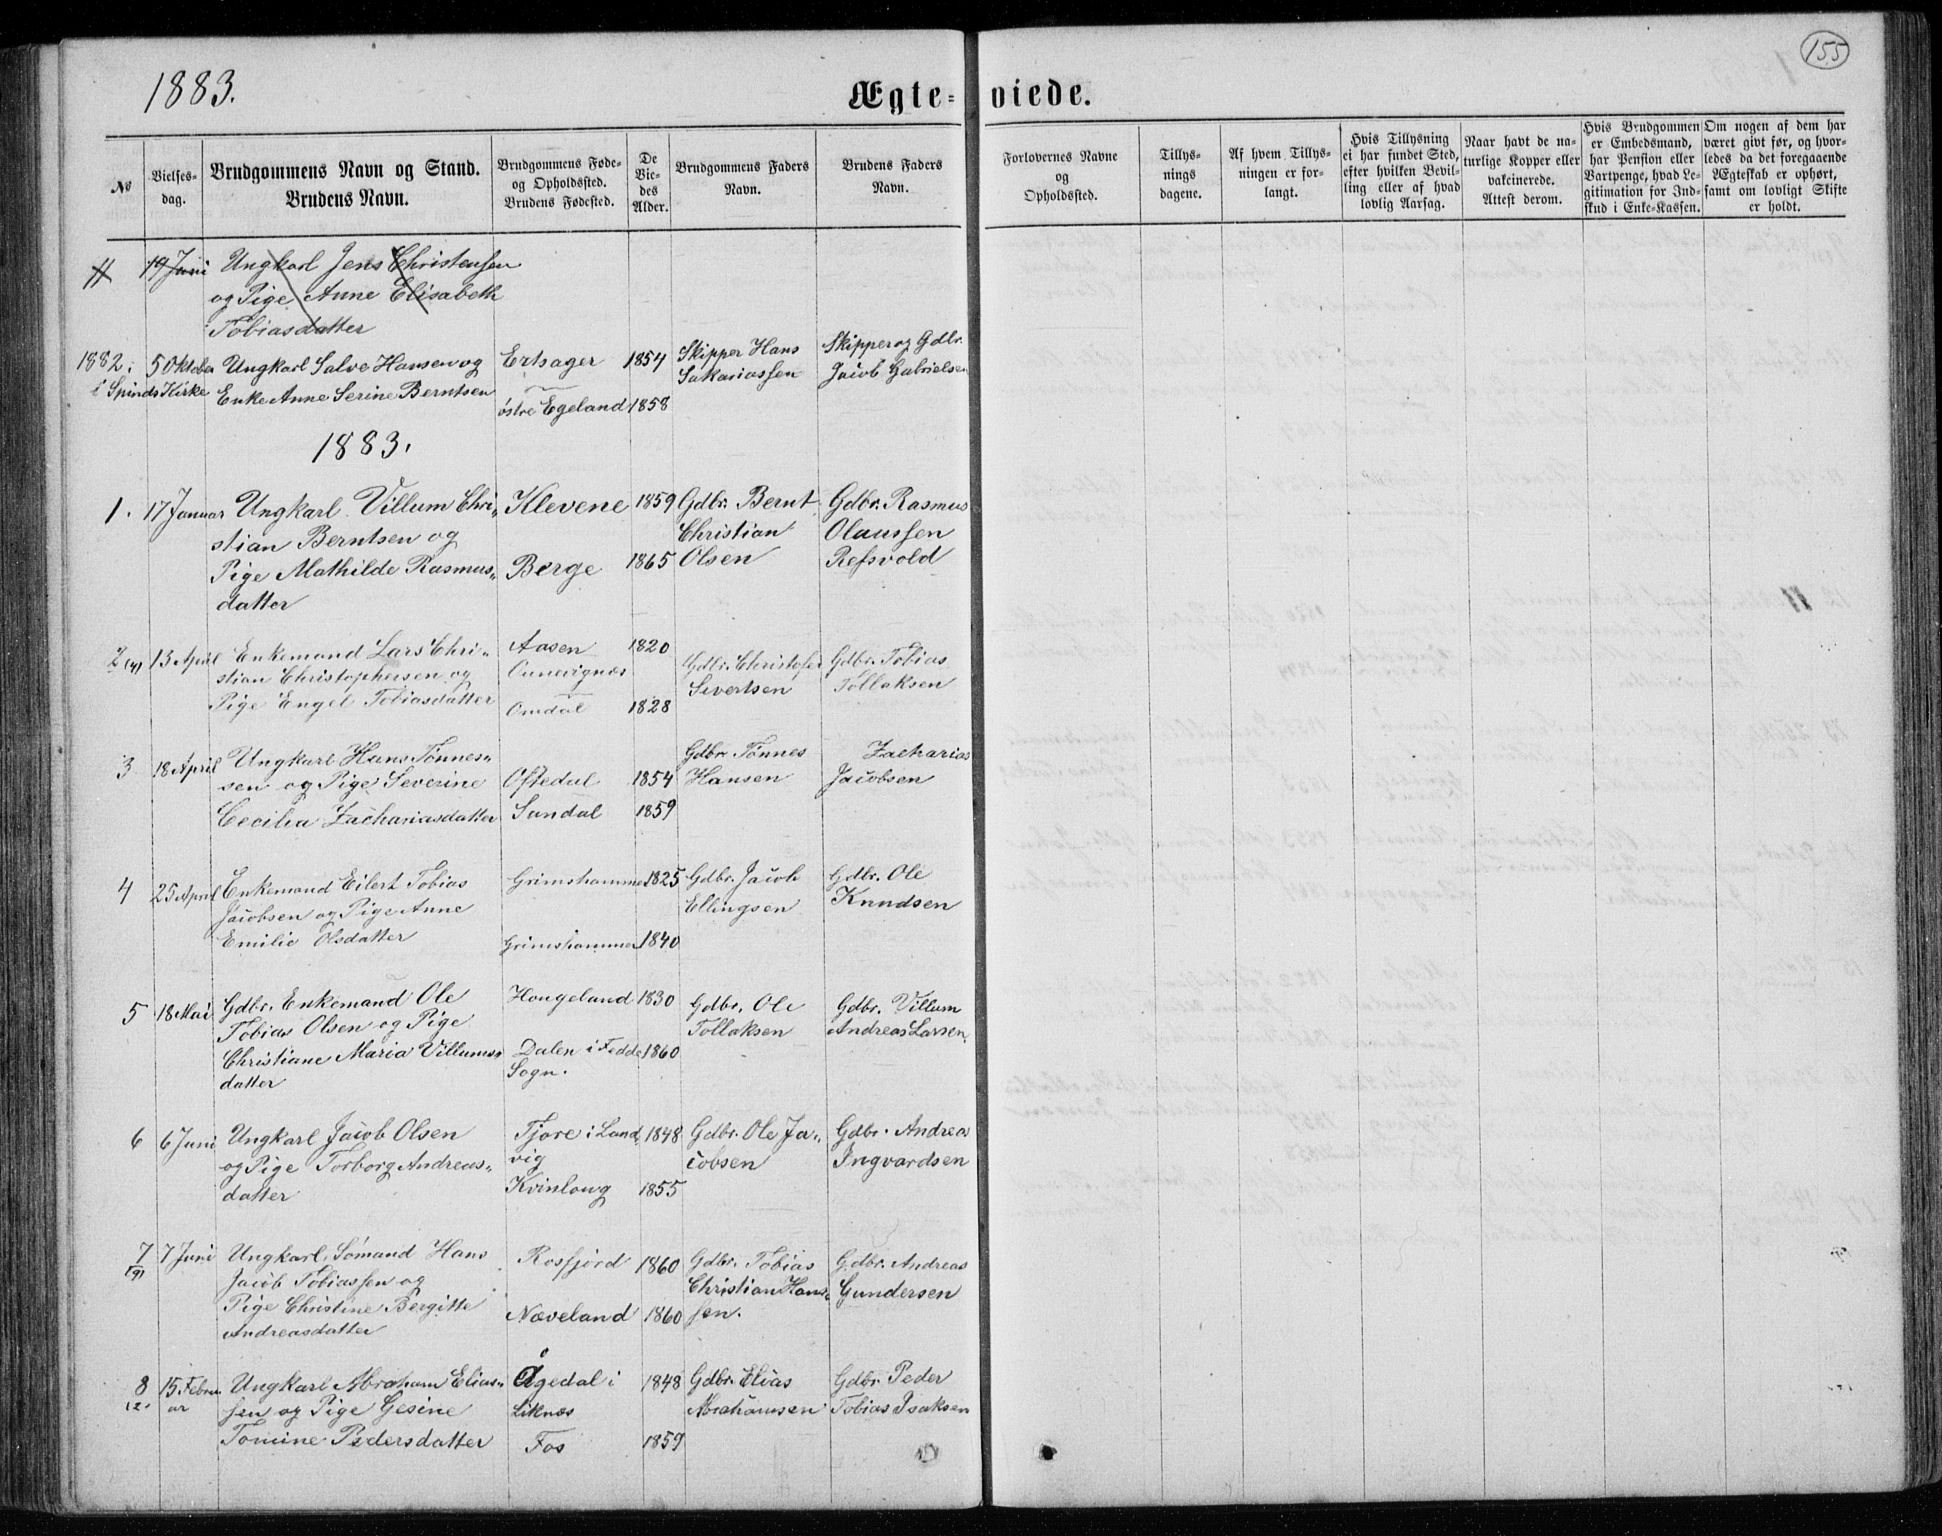 155
1883.
Ægte= viede.
No
Vielses-
dag.
Brudgommens Navn og Stand.
Brudens Navn.
Brudgommens Føde-
og Opholdssted.
Brudens Fødested.
De
Vie-
des
Alder.
Brudgommens Faders
Navn.
Brudens Faders
Navn.
Forlovernes Navne
og
Opholdssted.
Tillys-
nings
dagene.
Af hvem Tillys-
ningen er for-
langt.
Hvis Tillysning
ei har fundet Sted,
efter hvilken Bevil-
ling eller af hvad
lovlig Aarsag.
Naar havt de na-
turlige Kopper eller
vakcinerede.
Attest derom.
Hvis Brudgommen
er Embedsmand,
har Pension eller
Vartpenge, hvad Le-
gitimation for Ind-
skud i Enke-Kassen.
Om nogen af dem har
været givt før, og hvor-
ledes da det foregaaende
Ægteskab er ophørt,
samt om lovligt Skifte
er holdt.
11 19 Juni Ungkarl Jens Christensen
og Pige Anne Elisabeth
Tobiasdatter
1882 5 Oktober Ungkarl Salve Hansen og Ertsager 1854 Skipper Hans Skipper og Gdbr.
i Spinds Kirke Enke Anne Serine Berntsen Sakariassen Jacob Gabrielsen
østre Egeland 1858
1883.
1. 17 Januar Ungkarl Villum Chri- Klevene 1859 Gdbr. Bernt Gdbr. Rasmus
stian Berntsen og Christian Olaussen
Pige Mathilde Rasmus- Berge 1865 Olsen Refsvold
datter
2 (4) 13 April Enkemand Lars Chri- Aasen 1820
stian Christophersen og Gdbr. Christofer Gdbr. Tobias
Pige Engel Tobiasdatter Omdal 1828 Sivertsen Tollaksen
3 18 April Ungkarl Hans Tönnes- Gdbr. Tönnes Zacharias
sen og Pige Severine Oftedal 1854 Hansen Jacobsen
Cecilia Zachariasdatter Sandal 1859
4 25 April Enkemand Eilert Tobias Grimshammer 1825 Gdbr. Jacob Gdbr. Ole
Jacobsen og Pige Anne Ellingsen Knudsen
Emilie Olsdatter Grimshammer 1840
5 18 Mai Gdbr. Enkemand Ole Hougeland 1830 Gdbr. Ole Gdbr. Villum
Tobias Olsen og Pige Tollaksen Andreas Larsen
Christiane Maria Villums- Dalen i Fedde 1860
datter Sogn.
6 6 Juni Ungkarl Jacob Olsen Tjore i Land- 1848 Gdbr. Ole Ja- Gdbr. Andrea
og Pige Torborg Andreas- vig cobsen Ingvardsen
datter Kvinloug 1855
7 (9) 7 Juni Ungkarl, Sömand Hans Rosfjord 1860 Gdbr. Tobias Gdbr. Andreas
Jacob Tobiassen og Christian Hans- Gundersen
Pige Christine Bergitte Næveland 1860 sen.
Andreasdatter
8 15 Febru Ungkarl Abraham Elias- Ågedal i 1848 Gdbr. Elias Gdbr. Peder
12. ar sen og Pige Gesine Liknæs Abrahamsen Tobias Isaksen
Tomine Pedersdatter Fos 1859